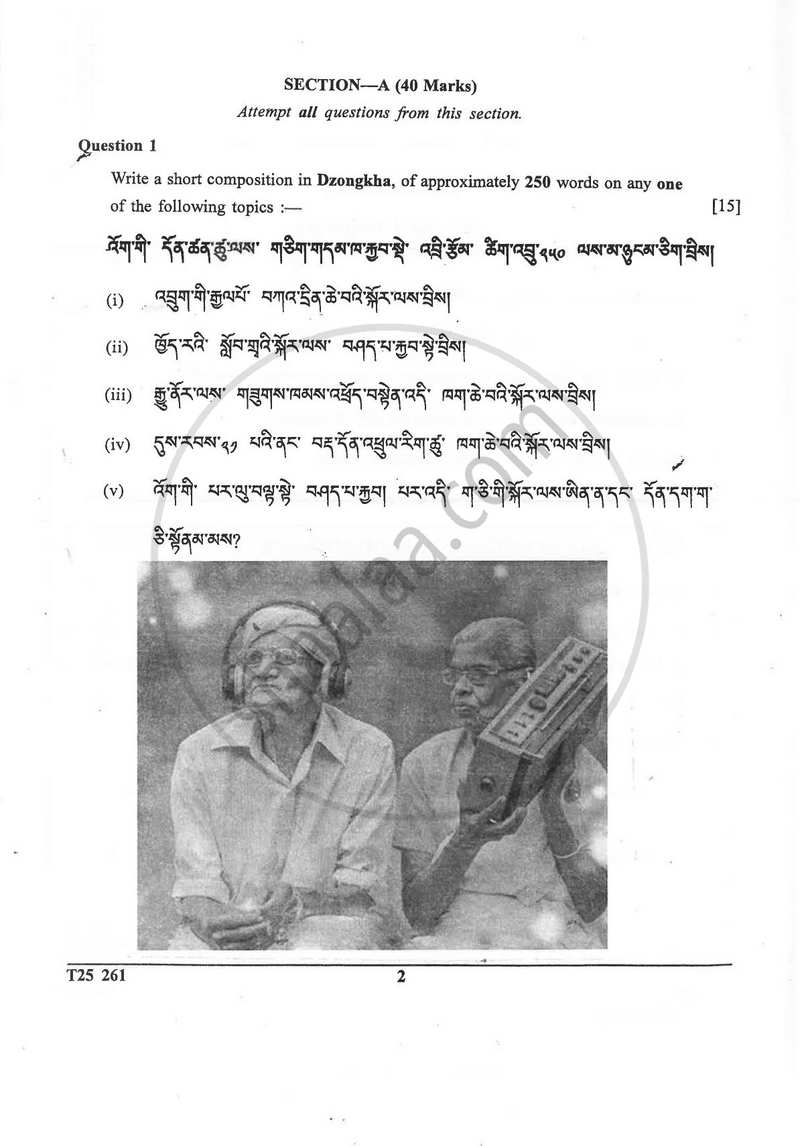 SECTION—A (40 Marks)
Attempt all questions from this section.
Question 1
Write a short composition in Dzongkha, of approximately 250 words on any one
of the following topics :— [15]
འོག་གི་ དོན་ཚན་ཚུ་ལས་ གཅིག་གདམ་ཁ་རྐྱབ་སྡེ་ འབྲི་རྩོམ་ ཚིག་འབྲུ་༢༥༠ ལས་མ་ཉུངམ་ཅིག་བྲིས།
(i) འབྲུག་གི་རྒྱལཔོ་ བཀའ་དྲིན་ཆེ་བའི་སྐོར་ལས་བྲིས།
(ii) ཁྱོད་རའི་ སློབ་གྲྭའི་སྐོར་ལས་ བཤད་པ་རྐྱབ་སྟེ་བྲིས།
(iii) རྒྱུ་ནོར་ལས་ གཟུགས་ཁམས་འཕྲོད་བསྟེན་འདི་ ཁག་ཆེ་བའི་སྐོར་ལས་བྲིས།
(iv) དུས་རབས་༢༡ པའི་ནང་ བརྡ་དོན་འཕྲུལ་རིག་ཚུ་ ཁག་ཆེ་བའི་སྐོར་ལས་བྲིས།
(v) འོག་གི་ པར་ལུ་བལྟ་སྟེ་ བཤད་པ་རྐྱབ། པར་འདི་ ག་ཅི་གི་སྐོར་ལས་ཨིན་ན་དང་ དོན་དག་ག་
ཅི་སྟོནམ་མས?
shaalaa.com
T25 261
2